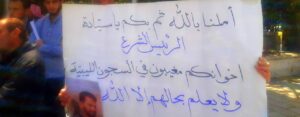 أملنا بالله ثم بكم يا سيادة
الرئيس الشرع
اخوانكم مغيبون في السجون الليبية
ولا يعلم بحالهم إلا الله